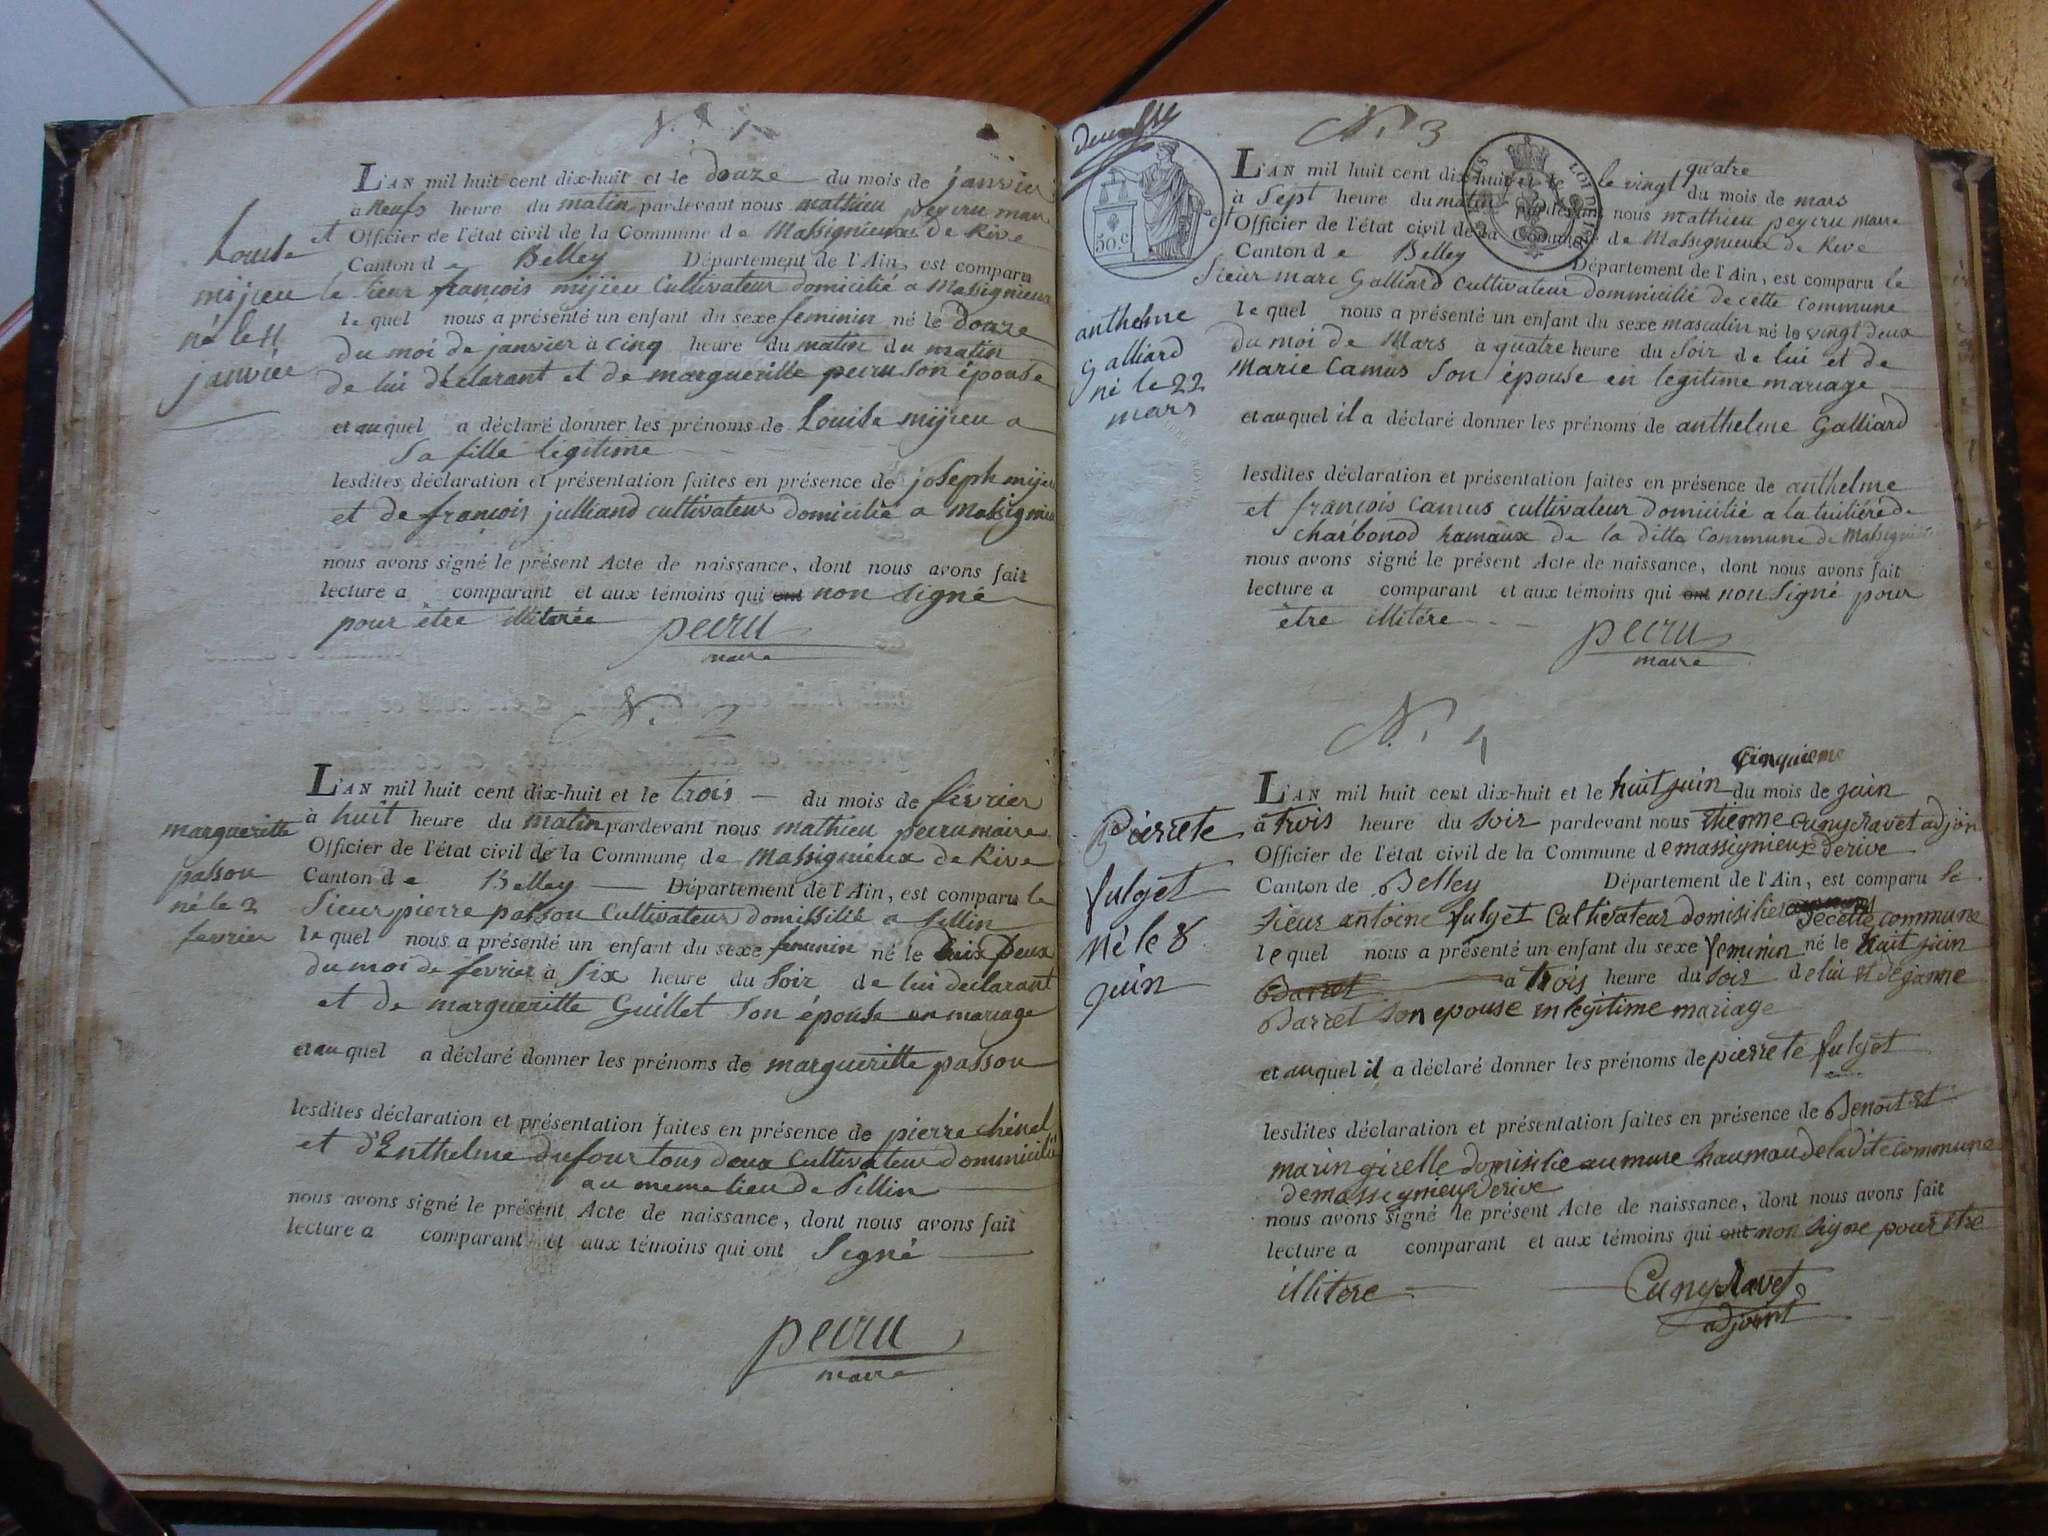 N.° 1
Louise
mijieu
né le 11
janvier
L'AN mil huit cent dix-huit et le douze du mois de janvier
à neufs heure du matin pardevant nous mathieu peycru maire
et Officier de l'état civil de la Commune de Massignieux de Rive
Canton de Belley Département de l'Ain, est comparu
le sieur françois mijieu Cultivateur domicilié a Massignieux
le quel nous a présenté un enfant du sexe feminin né le douze
du moi de janvier à cinq heure du matin du matin
de lui déclarant et de margueritte pecru son épouse
et au quel a déclaré donner les prénoms de Louise mijieu a
sa fille légitime
lesdites déclaration et présentation faites en présence de joseph mijieu
et de françois julliand cultivateur domicilié a Massignieu
nous avons signé le présent Acte de naissance, dont nous avons fait
lecture a comparant et aux témoins qui ont non signé
pour être illiterée pecru
maire
N.° 2
margueritte
passou
né le 2
fevrier
L'AN mil huit cent dix-huit et le trois du mois de février
à huit heure du matin pardevant nous mathieu pecru maire
Officier de l'état civil de la Commune de Massignieux de Rive
Canton de Belley Département de l'Ain, est comparu le
Sieur pierre passou Cultivateur domissilié a Sillin
le quel nous a présenté un enfant du sexe feminin né le deux
du moi de fevrier à six heure du soir de lui declarant
et de margueritte Guillet son épouse en mariage
et au quel a déclaré donner les prénoms de margueritte passou
lesdites déclaration et présentation faites en présence de pierre
et d'Enthelme dufour tous deux cultivateur dommicilié
au meme lieu de Sillin
nous avons signé le présent Acte de naissance, dont nous avons fait
lecture a comparant et aux témoins qui ont Signé
pecru
maire
N.° 3
50.c
anthelme
Galliard
né le 22
mars
L'AN mil huit cent dix-huit et le le vingt quatre du mois de mars
à Sept heure du matin pardevant nous mathieu peycru maire
et Officier de l'état civil de la Commune de Massignieux de Rive
Canton de Belley Département de l'Ain, est comparu le
Sieur marc Galliard cultivateur dommicilié de cette commune
le quel nous a présenté un enfant du sexe masculin né le vingt deux
du moi de Mars à quatre heure du soir de lui et de
Marie Camus son épouse en légitime mariage
et au quel il a déclaré donner les prénoms de anthelme Galliard
lesdites déclaration et présentation faites en présence de anthelme
et françois Camus cultivateur domicilié a la tuilière de
charbonod hamaux de la ditte commune de Massignieu
nous avons signé le présent Acte de naissance, dont nous avons fait
lecture a comparant et aux témoins qui ont non Signé pour
être illitére pecru
maire
N.° 4
Piérrete
fulget
né le 8
juin
L'AN mil huit cent dix-huit et le huit juin cinquieme du mois de juin
à trois heure du soir pardevant nous Etienne Cuny Ravet adjoin
Officier de l'état civil de la Commune de massignieux derive
Canton de Belley Département de l'Ain, est comparu le
sieur antoine fulget Cultivateur domisilier decette commune
le quel nous a présenté un enfant du sexe feminin né le huit juin
Barret à trois heure du soir de lui et de janne
Barret son epouse en legitime mariage
et au quel il a déclaré donner les prénoms de pierrete fulget
lesdites déclaration et présentation faites en présence de Benoit et
marin girelle domisilié au mure haumau de la dite commune
de massignieux derive
nous avons signé le présent Acte de naissance, dont nous avons fait
lecture a comparant et aux témoins qui ont non signe pour etre
illitere Cuny Ravet
adjoint